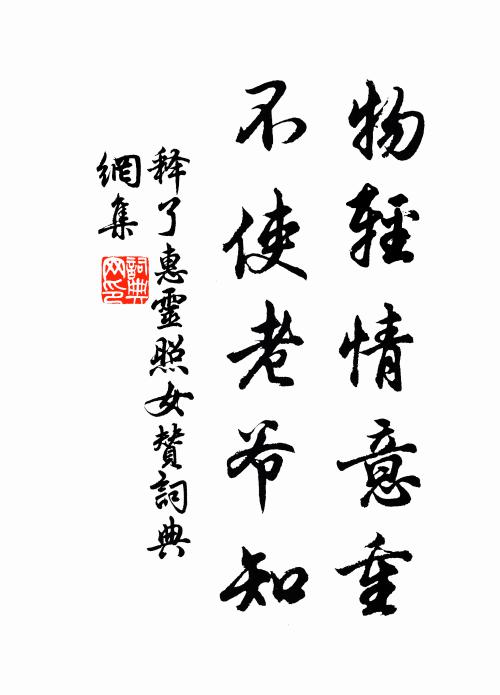 物輕情意重
不使老爷知
释了惠靈照女赞詞典
網集
詞典網印